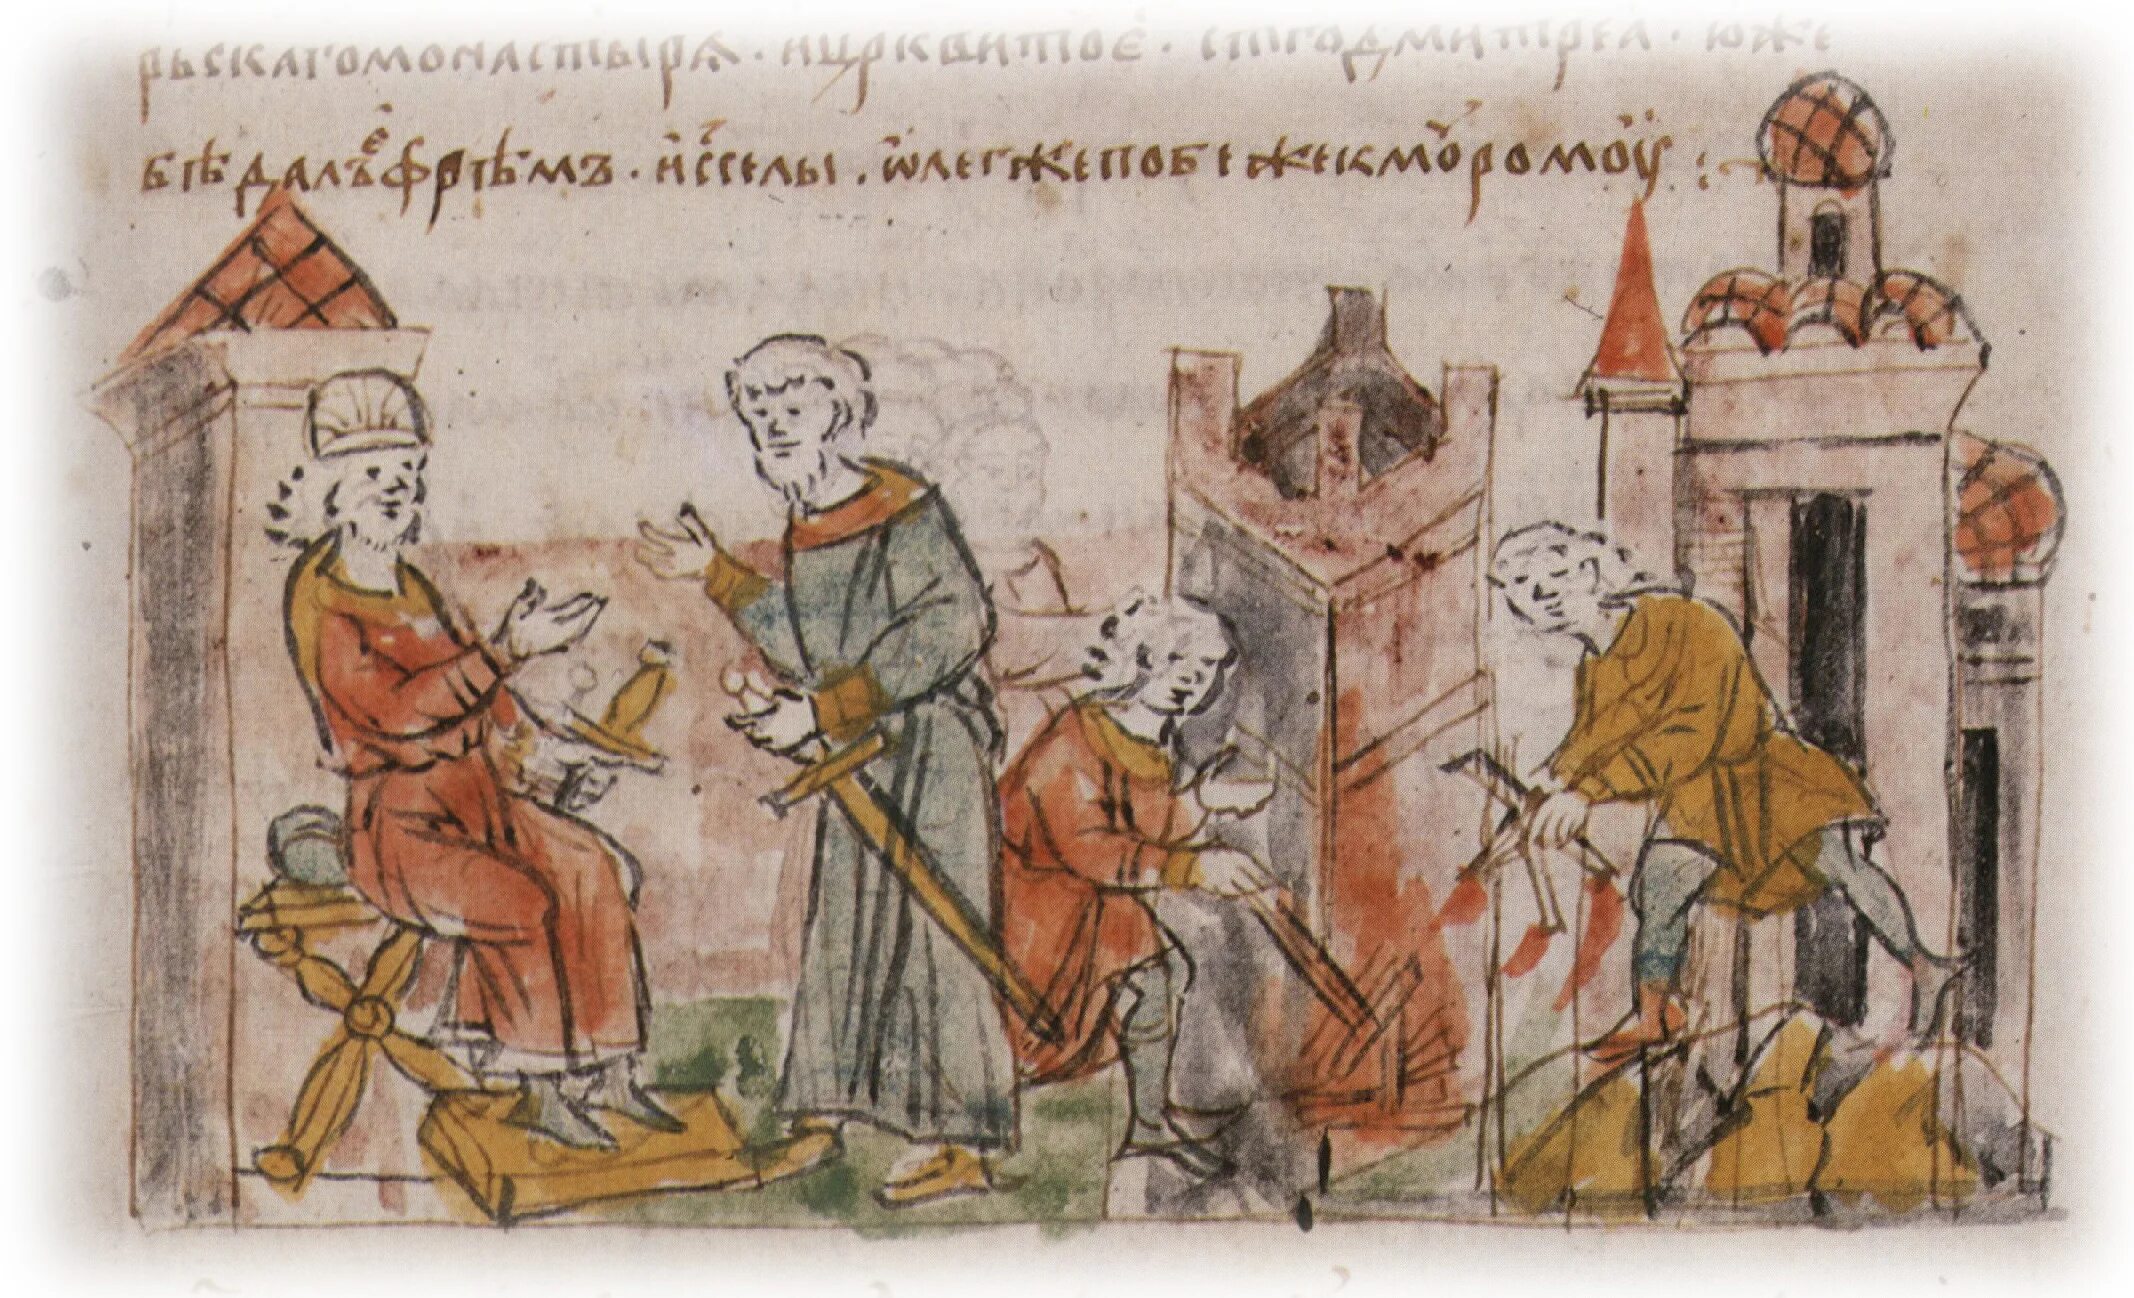 рьскагомонастырѧ · ицрквитое · стгодмитреа · юже
бѣдалъефрѣмъ · исселы · ѡлегжепобежекморомоу :